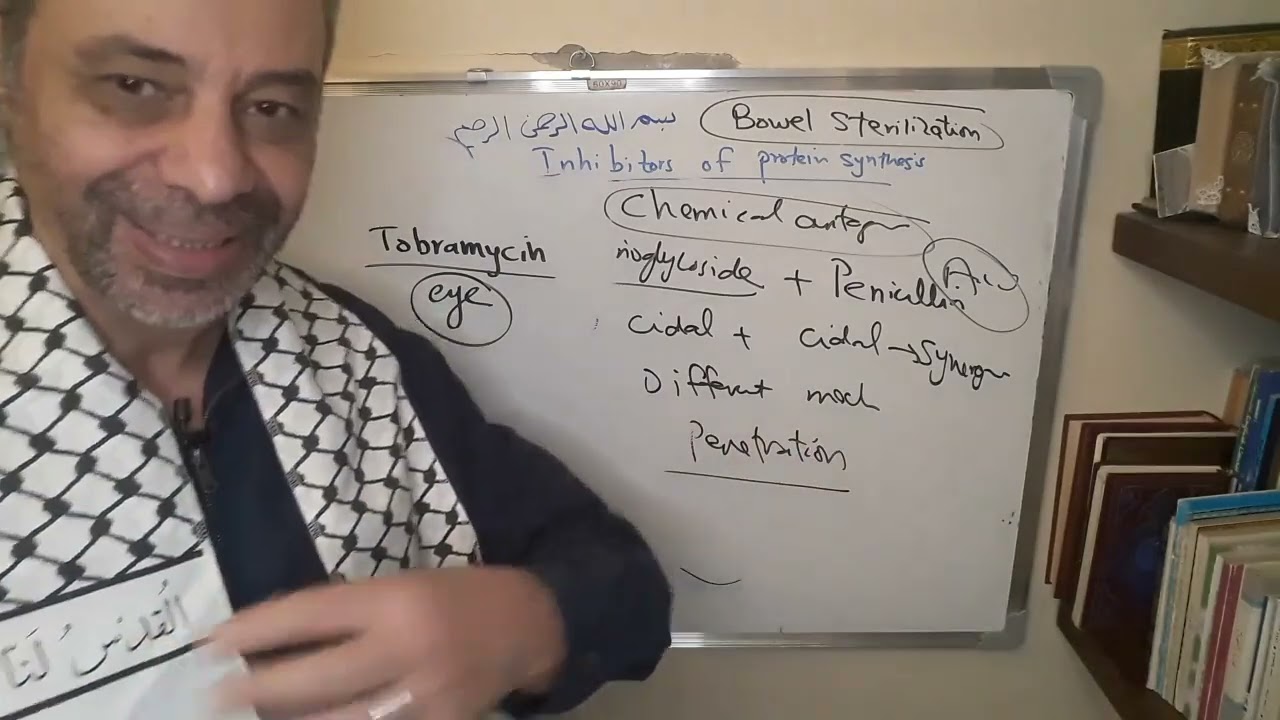 بسم الله الرحمن الرحيم
Bowel Sterilization
Inhibitors of protein synthesis
Chemical antag
Tobramycin
eye
noglycoside + Penicillin
cidal + cidal → Synergn
Different mech
Penetration
القدس لنا